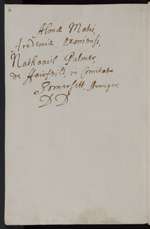 Almæ Matri
Academiæ Oxoniensi,
Nathaniel Palmer
de Fairfield in Comitatu
Somersett. Armiger
D D